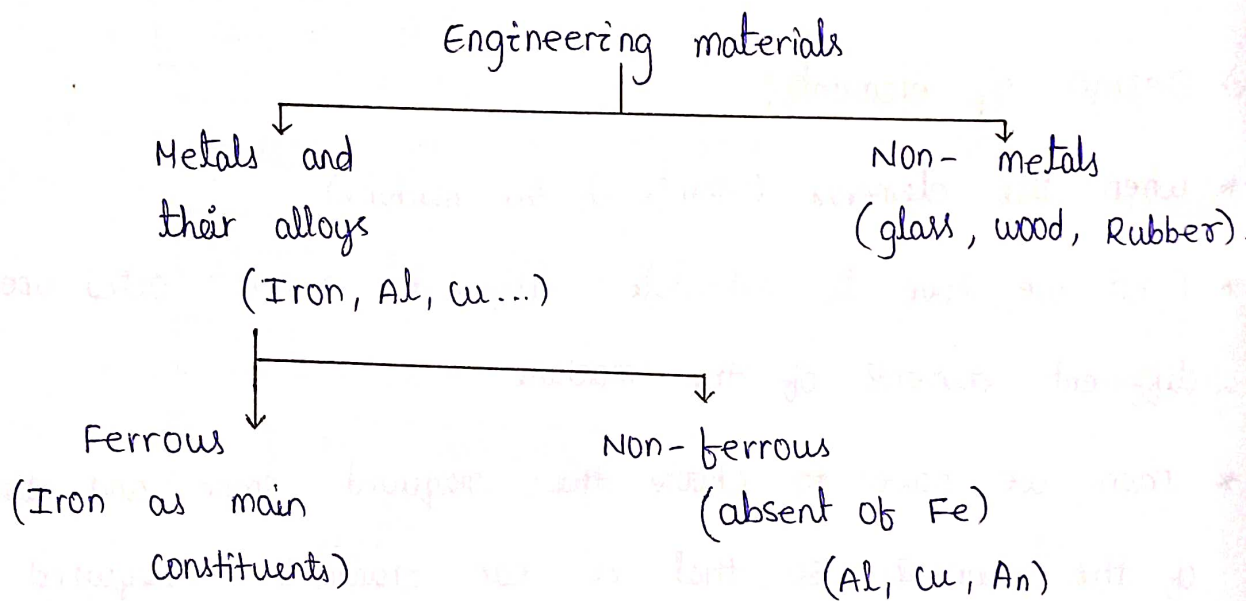 Engineering materials
Metals and
their alloys
(Iron, Al, Cu...)
Non- metals
(glass, wood, Rubber).
Ferrous
(Iron as main
constituents)
Non-ferrous
(absent of Fe)
(Al, Cu, An)